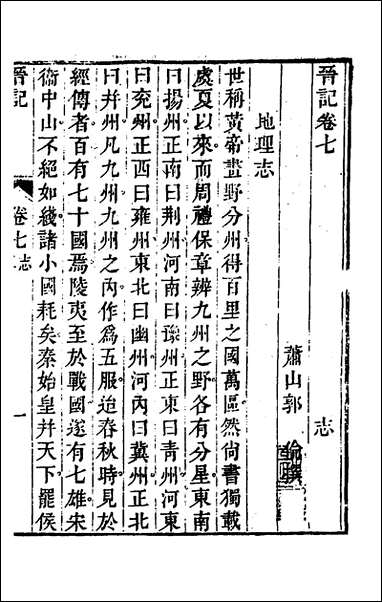 晉記卷七　志
蕭山郭　倫撰
地理志
世稱黃帝畫野分州得百里之國萬區然尙書獨載
虞夏以來而周禮保章辨九州之野各有分星東南
曰揚州正南曰荆州河南曰豫州正東曰青州河東
曰兖州正西曰雍州東北曰幽州河內曰冀州正北
曰并州凡九州九州之內作爲五服迨春秋時見於
經傳者百有七十國焉陵夷至於戰國遂有七雄宋
衞中山不絕如綫諸小國耗矣秦始皇并天下罷侯
晉記
卷七志
一